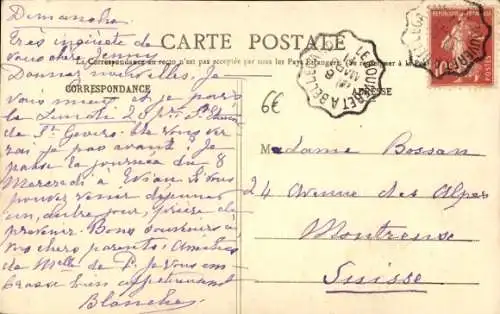 Dimanche
CARTE POSTALE
Très inquiète de
vous chère Jenny
La Correspondance au recto n'est pas acceptée par tous les Pays Étrangers (Se renseigner à la Poste)
Donnez nouvelles. Je
CORRESPONDANCE
ADRESSE
6€
vous et je pars
la
de St Gervais. Ne vous ver
rai je pas avant? Je
passe la journée du 8
Mercredi à Evian. Si vous
pouvez venir déjeuner
un autre jour, prière de
prévenir. Bons souvenirs à
vos chers parents. Amitiés
de Melle de P. Je vous em
brasse bien affectueusement
Blanche
Madame Bossan
24 Avenue des Alpes
Montreux
Suisse
LE BOUVERET A BELLEGARDE
10
POSTES